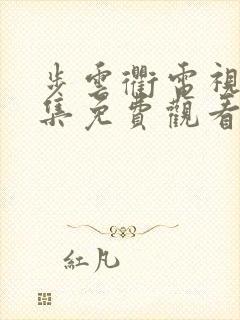 步雲衢電視
集免費觀看
紅凡